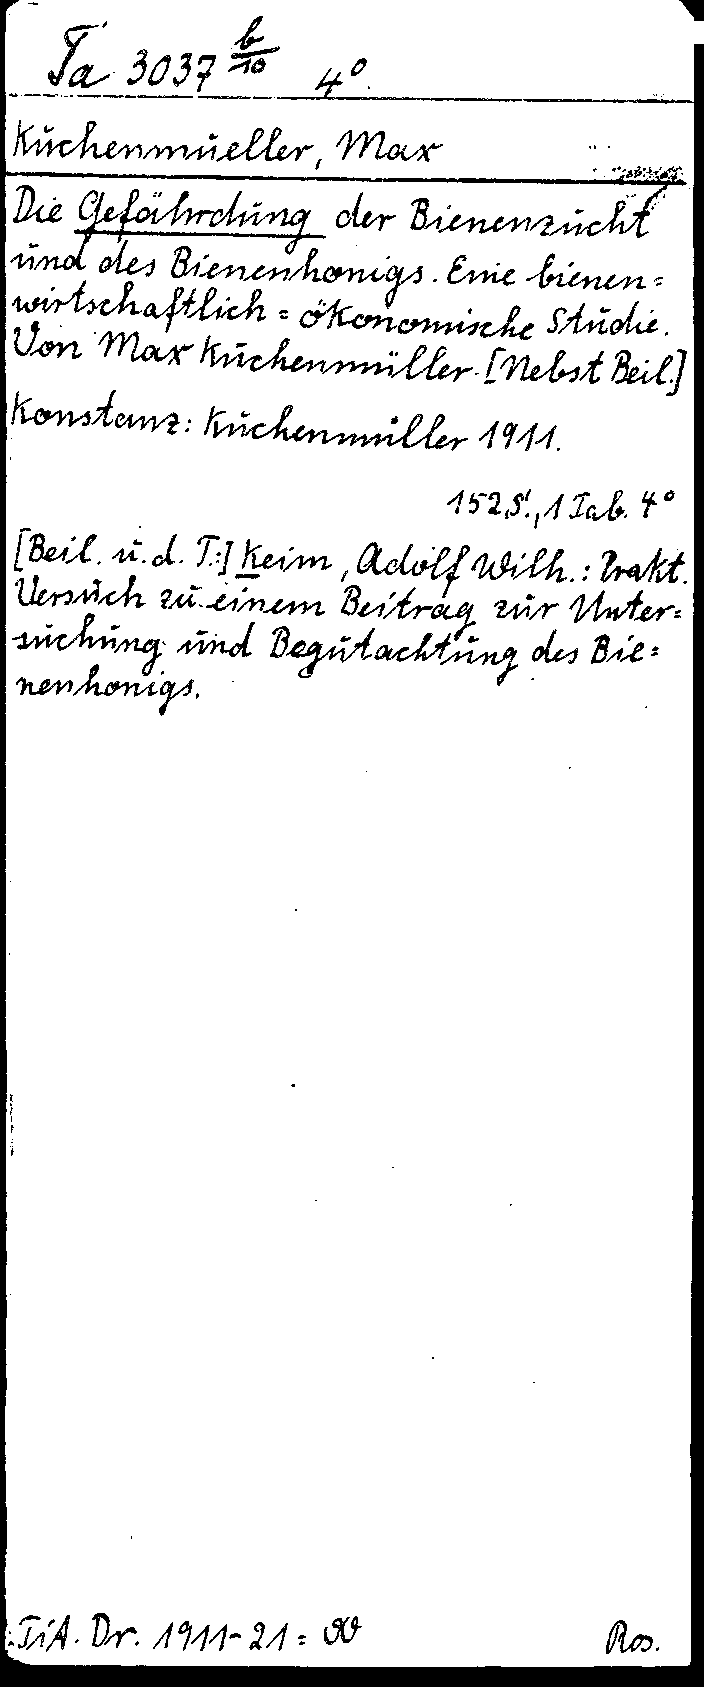 Ta 3037 b/10 4°.
Kuchenmueller, Max
Die Gefährdung der Bienenzucht
und des Bienenhonigs. Eine bienen=
wirtschaftlich=ökonomische Studie.
Von Max Kuchenmüller. [Nebst Beil.]
Konstanz: Kuchenmüller 1911.
152 S., 1 Tab. 4°
[Beil. u. d. T.:] Keim, Adolf Wilh.: Prakt.
Versuch zu einem Beitrag zur Unter=
suchung und Begutachtung des Bie=
nenhonigs.
TiA. Dr. 1911-21=
Ros.